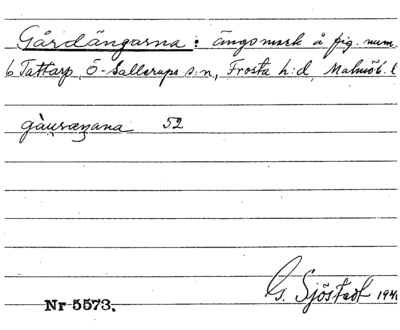 Gårdängarna: ängsmark å fig. num.
6 Tattarp, Ö-Sallerups s:n, Frosta h:d, Malmöh. l
52
G. Sjöstedt 194
Nr 5573.